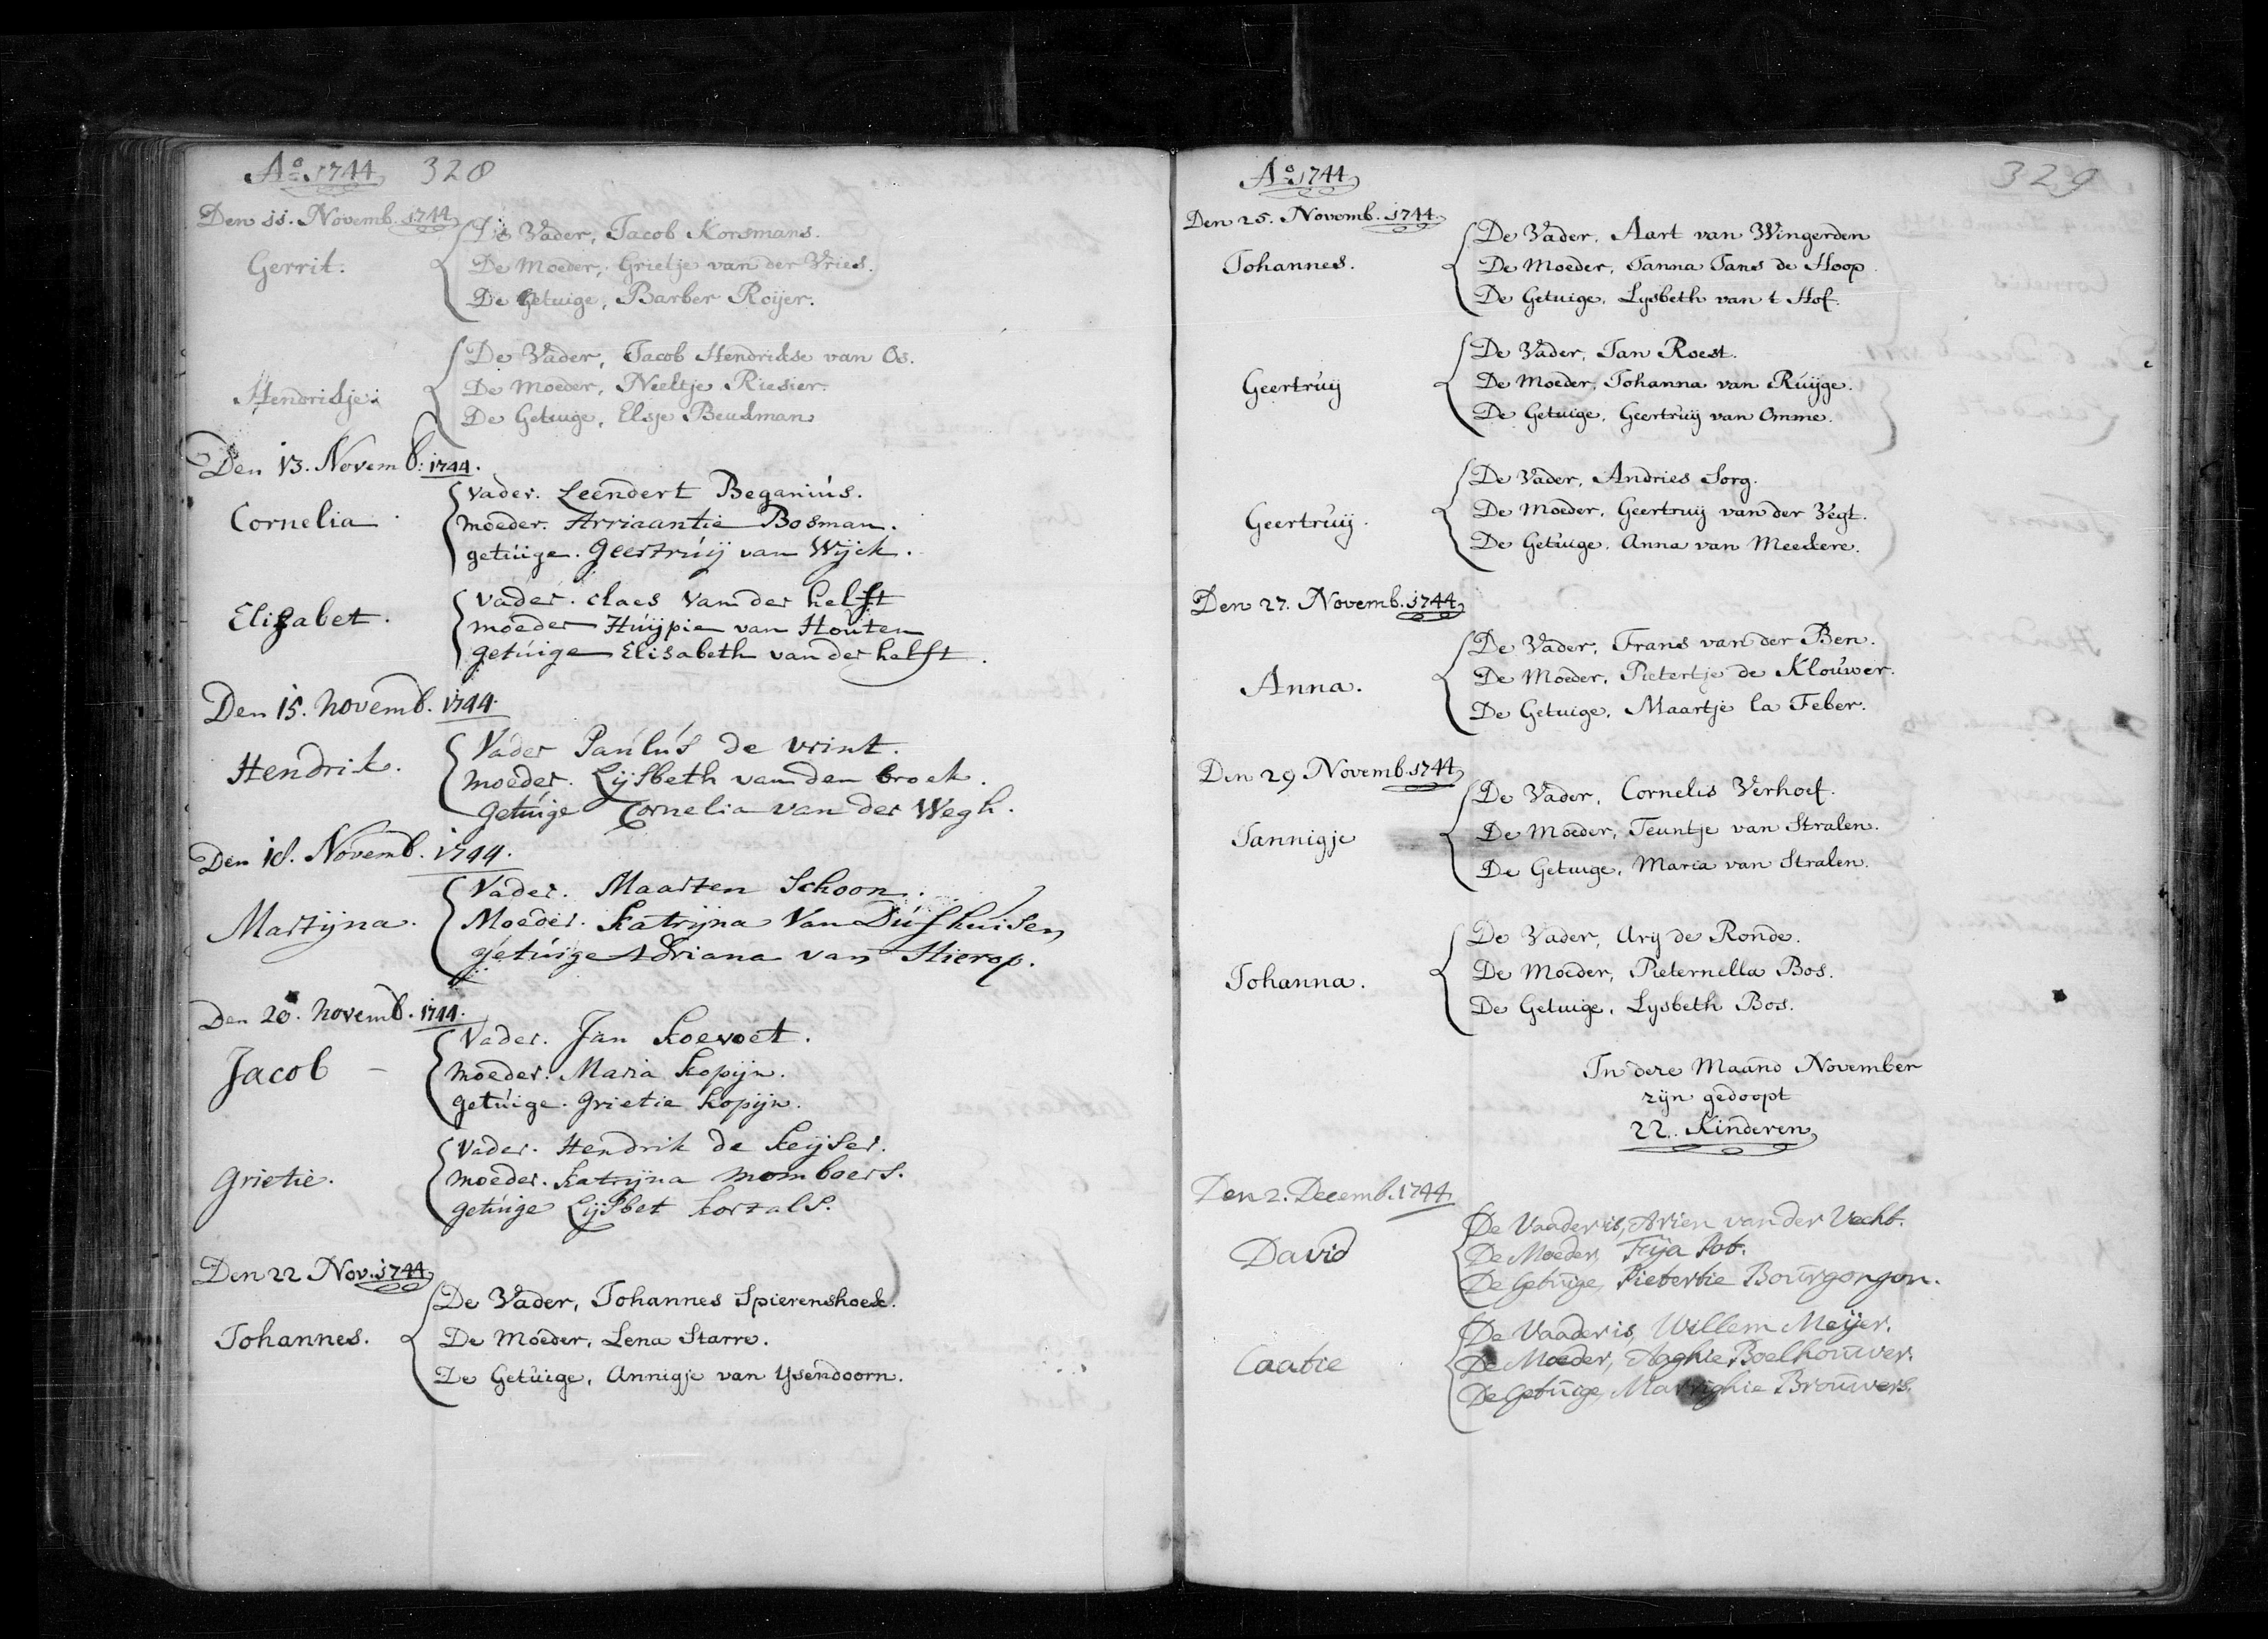 Aº 1744 328
Den 11. Novemb. 1744
Gerrit.
De Vader, Jacob Korsmans.
De Moeder, Grietje van der Vries.
De Getuige, Barber Roijer.
Hendrickje.
De Vader, Jacob Hendrickse van Os.
De Moeder, Neeltje Riesier.
De Getuige, Elsje Beuckman
Den 13. Novemb: 1744.
Cornelia
vader. Leendert Beganiús.
moeder. Arriaantie Bosman.
getúige. Geertrúij van Wijck.
Elizabet.
vader. claes van der helft
moeder Húijpie van Houten
getúige Elisabeth van der helft.
Den 15. novemb. 1744.
Hendrik.
Vader Paúlús de vrint.
moeder. Lijsbeth van den broek.
Getúige Cornelia van der Wegh.
Den 18. Novemb. 1744.
Martijna.
Vader. Maarten Schoon.
Moeder. Katrijna Van Dúfhuisen
getúige Adriana van Hierop.
Den 20. novemb. 1744.
Jacob
Vader. Jan Koevoet.
moeder. Maria Kopijn.
getúige. Grietie Kopijn.
Grietie.
Vader. Hendrik de Keijser.
moeder. Katrijna momboers.
getúige Lijsbet Kortals.
Den 22 Nov. 1744
Johannes.
De Vader, Johannes Spierenshoek.
De Moeder, Lena Starre.
De Getúige, Annigje van Ysendoorn.
Aº 1744 329
Den 25. Novemb. 1744
Johannes.
De Vader, Aart van Wingerden
De Moeder, Janna Jans de Hoop.
De Getuige, Lysbeth van t Hof.
Geertrúij
De Vader, Jan Roest.
De Moeder, Johanna van Rúijge.
De Getuige, Geertruij van Omme.
Geertrúij.
De Vader, Andries Sorg.
De Moeder, Geertruij van der Vegt.
De Getúige, Anna van Meeckere.
Den 27. Novemb. 1744
Anna.
De Vader, Frans van der Ben.
De Moeder, Pietertje de Kloúwer.
De Getuige, Maartje la Feber.
Den 29 Novemb. 1744
Jannigje
De Vader, Cornelis Verhoef.
De Moeder, Teuntje van Stralen.
De Getuige, Maria van Stralen.
Johanna.
De Vader, Ary de Ronde.
De Moeder, Pieternella Bos.
De Getuige, Lysbeth Bos.
In deze Maand November
zijn gedoopt
22. Kinderen
Den 2. Decemb. 1744
David
De Vaader is, Arien van der Vecht.
De Moeder, Fija Pot.
De Getuige, Pietertie Bourgongon.
Caatie
De Vaader is, Willem Meijer.
De Moeder, Aaghie Boelhouwer.
De Getuige, Marrighie Brouwers.